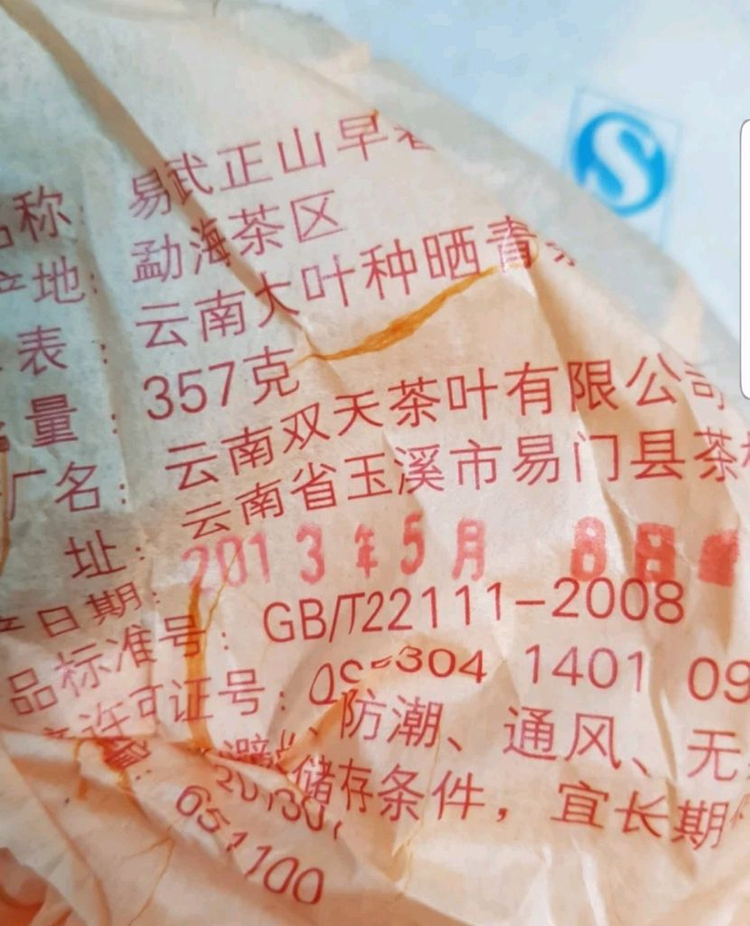 称: 易武正山早春
地: 勐海茶区
表: 云南大叶种晒青
量: 357克
厂名: 云南双天茶叶有限公司
址: 云南省玉溪市易门县茶
日期: 2013年5月 8日
品标准号: GB/T22111-2008
许可证号: QS5304 1401 09
避 、防潮、通风、无
储存条件，宜长期
651100